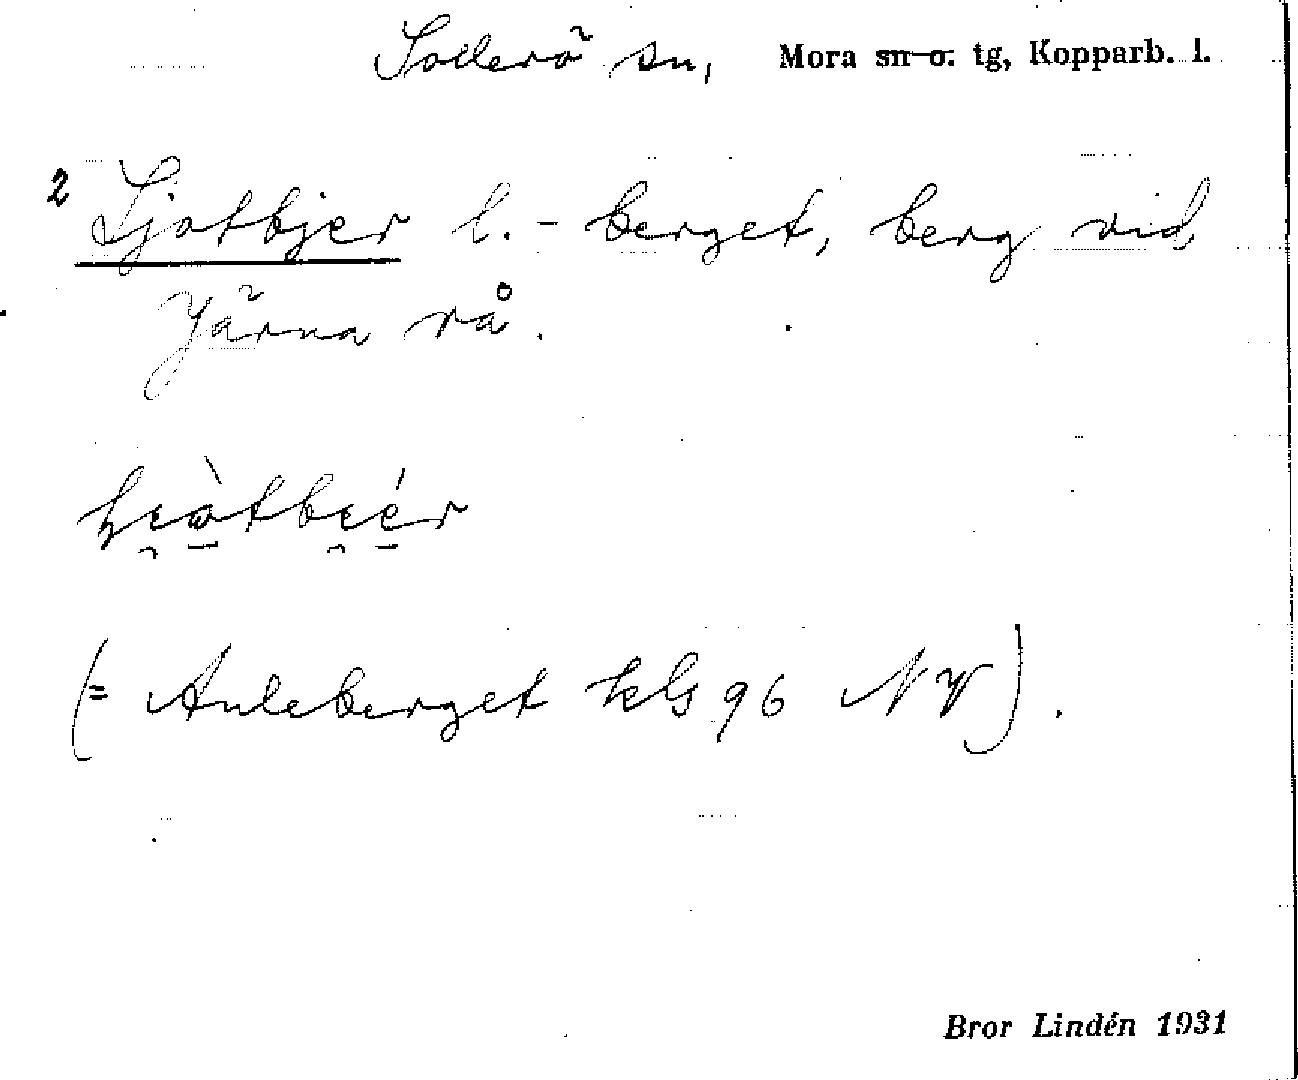 Sollerö sn, Mora sn o. tg, Kopparb. l.
2 Ljotbjer l. -berget, berg vid
Järna rå.
(= Auleberget kbl 96 NV).
Bror Lindén 1931